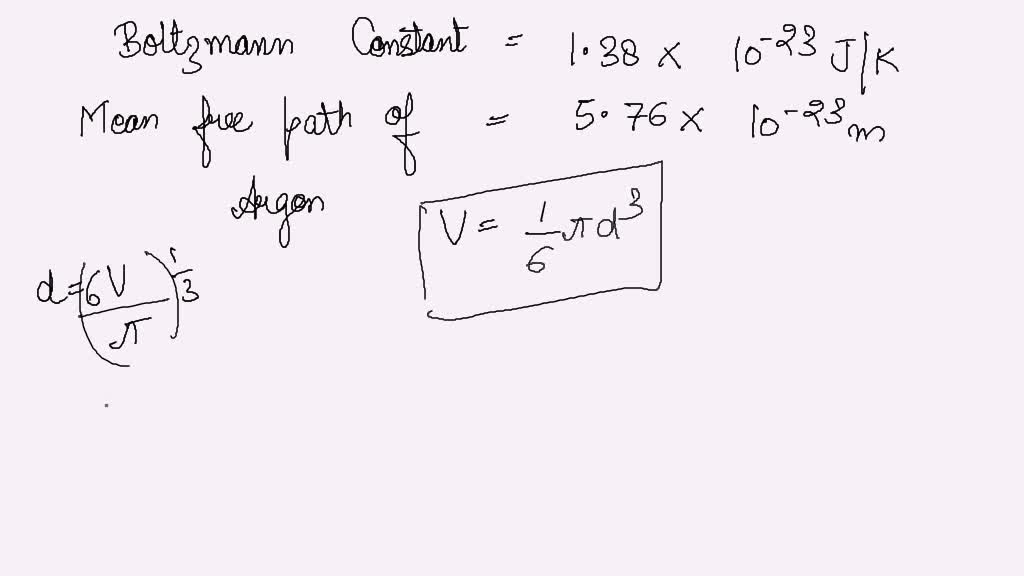 Boltzmann Constant = 1.38 × 10⁻²³ J/K
Mean free path of = 5.76 × 10⁻²³ m
Argon
V = 1/6 πd³
d = (6V/π)^1/3